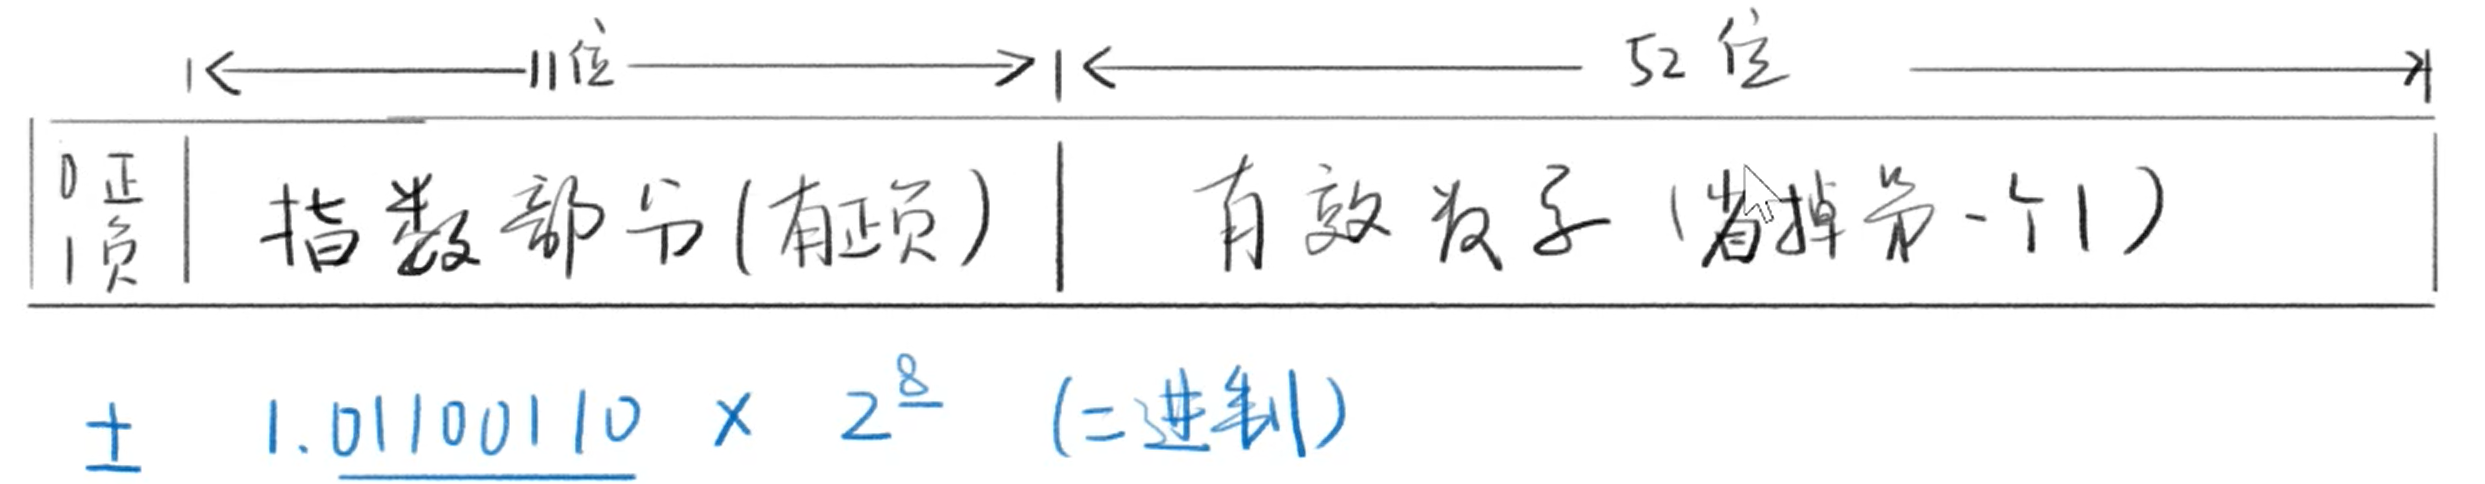 11位 52位
0正 指数部分(有正负) 有效数字(省掉第一个1)
1负
± 1.01100110 × 2^8 (二进制)